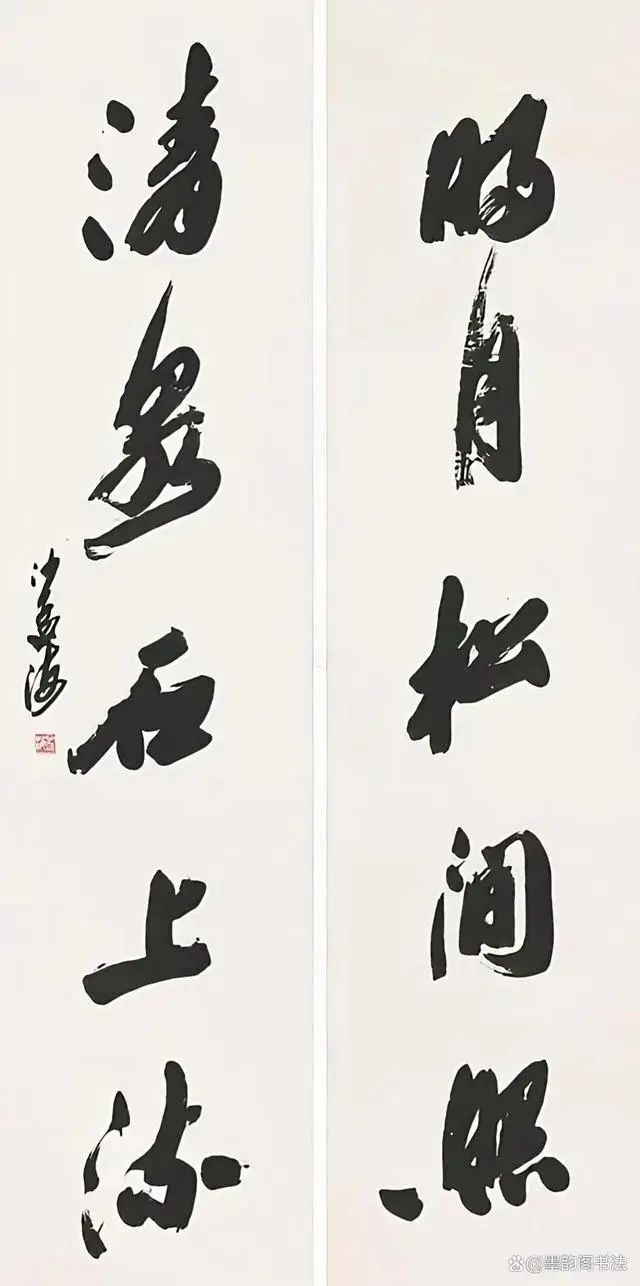 明月松间照
清泉石上流
沙孟海
@墨韵阁书法